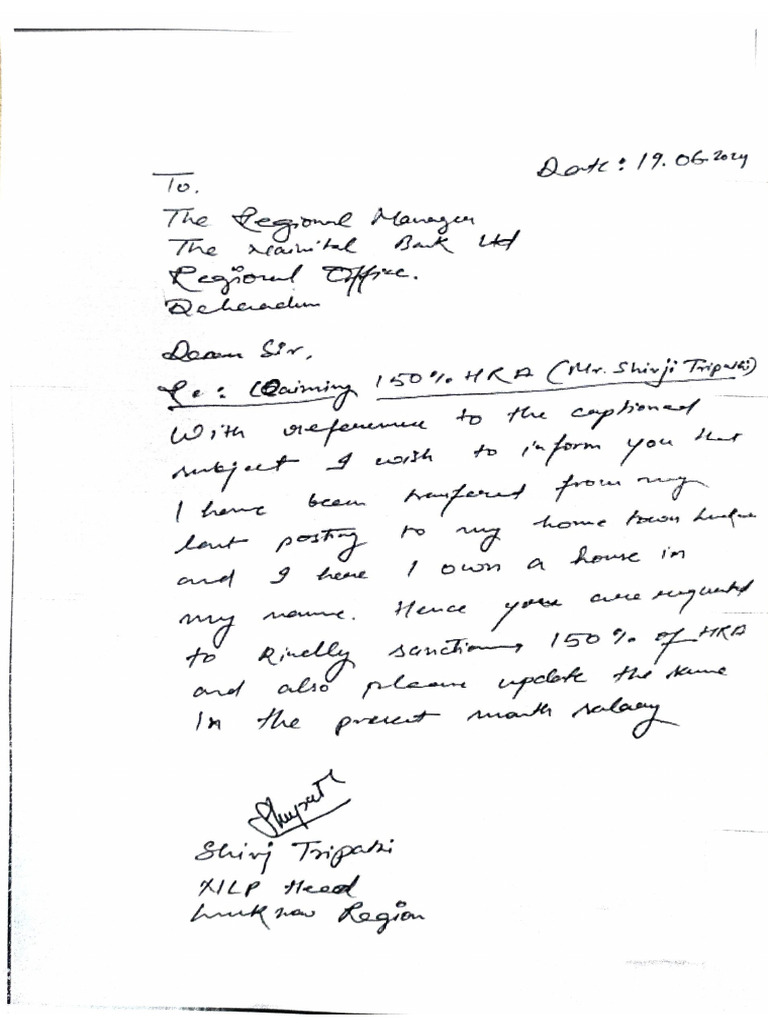 Date: 19.06.2024
To.
The Regional Manager
The Nainital Bank Ltd
Regional Office.
Dehradun
Dear Sir,
Re: Claiming 150% HRA (Mr. Shivji Tripathi)
With reference to the captioned
subject I wish to inform you that
I have been transfered from my
last posting to my home town
and I here I own a house in
my name. Hence you are requested
to kindly sanction 150% of HRA
and also please update the same
in the present month salary
Shivj Tripathi
Head
Lucknow Region